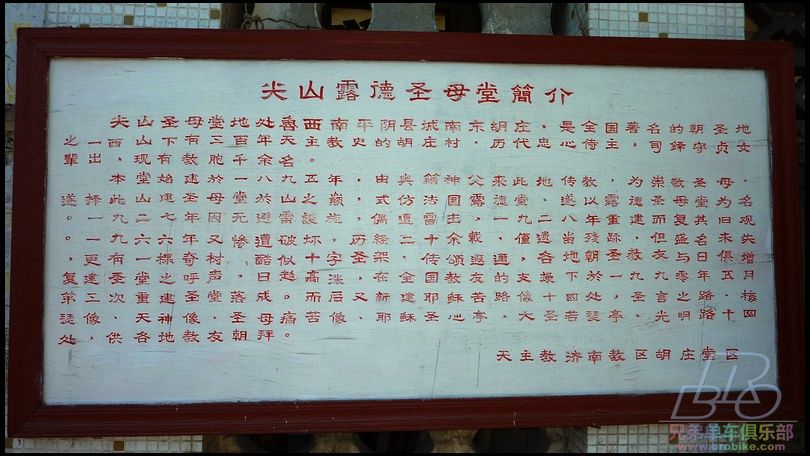 尖山露德圣母堂簡介
尖山圣母堂地处鲁西南平阴县城南东胡庄，是全国著名的朝圣地
之一，山下有三百年天主教史的胡庄村，历代忠心侍主，司鐸守贞女
輩出，现有教胞千余名。
本堂始建於一八九五年，由神父來此地传教，为崇敬圣母，
遂择山建圣母堂於山之巅，式仿法国露德堂，露德圣母堂為名
。年因无避雷設施，偶遭雷击。一九二八年重建
。一九六六年又惨遭破坏，历经二十余載，僅遗残跡，但盛名未失
，更有一棵奇材酷似十字架，傳頌遐迩，各地教友与日俱增
。复建圣堂呼声日趋高涨，在全国教友的支援下於一九九零年五月
第三次重建圣堂落成。而后又新建耶稣苦路像十四处，圣言之路
瑟像、天神像、圣母痛苦像、耶稣圣心亭、大圣若瑟亭。光明路十四
处，供各地教友朝拜。
天主教济南教区胡庄堂区
BRO
兄弟单车俱乐部
www.brobike.com